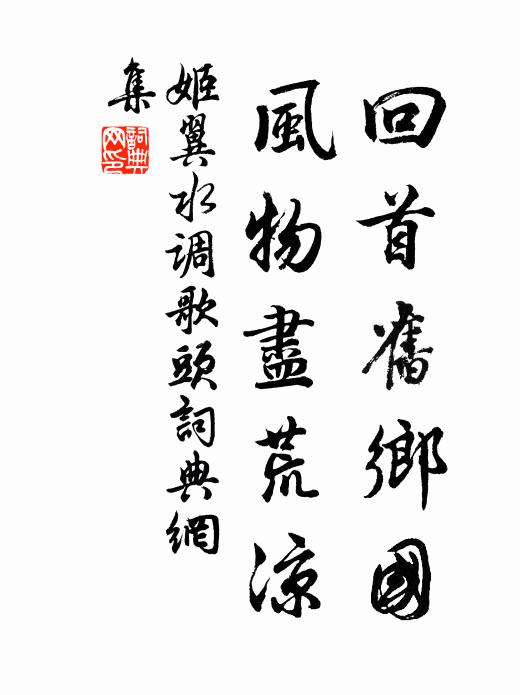 回首舊鄉國
風物盡荒涼
姬翼水调歌頭詞典網
集
詞典
网印